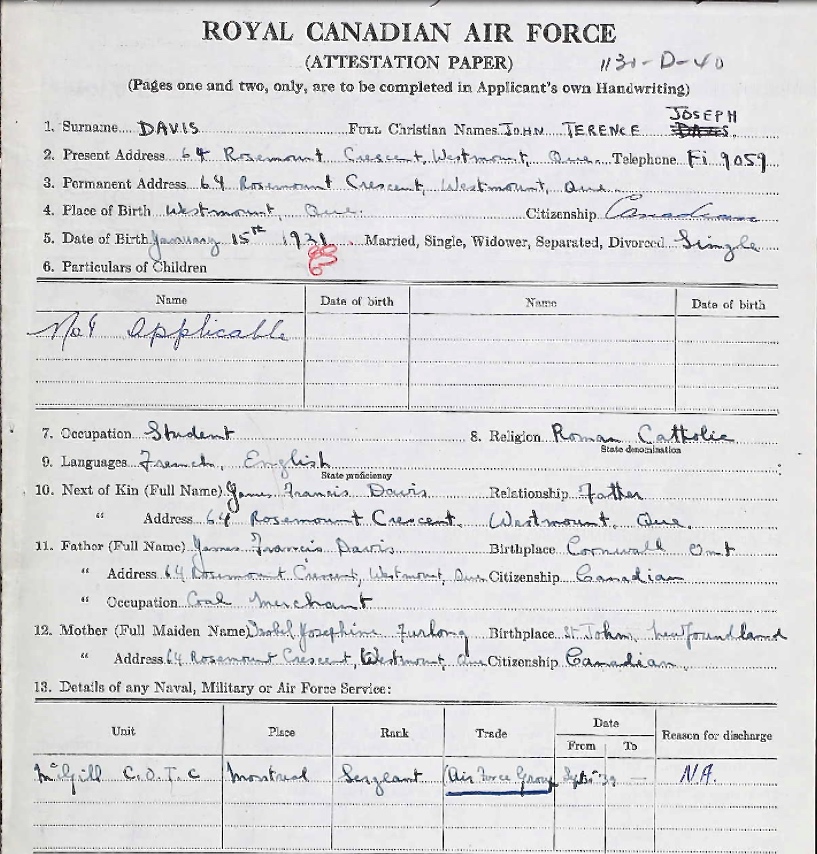 ROYAL CANADIAN AIR FORCE
(ATTESTATION PAPER) 1131-D-40
(Pages one and two, only, are to be completed in Applicant's own Handwriting)
JOSEPH
1. Surname DAVIS FULL Christian Names JOHN TERENCE
2. Present Address 64 Rosemount Crescent, Westmount, Que. Telephone Fi 9059
3. Permanent Address 64 Rosemount Crescent, Westmount, Que.
4. Place of Birth Westmount, Que. Citizenship Canadian
5. Date of Birth January 15th Married, Single, Widower, Separated, Divorced Single
6. Particulars of Children
Name Date of birth Name Date of birth
Not Applicable
7. Occupation Student 8. Religion Roman Catholic
State denomination
9. Languages French, English
State proficiency
10. Next of Kin (Full Name) James Francis Davis Relationship Father
" Address 64 Rosemount Crescent, Westmount, Que.
11. Father (Full Name) James Francis Davis Birthplace Cornwall Ont
" Address 64 Rosemount Crescent, Westmount, Que Citizenship Canadian
" Occupation Coal Merchant
12. Mother (Full Maiden Name) Isobel Josephine Furlong Birthplace St John, Newfoundland
" Address 64 Rosemount Crescent, Westmount, Que Citizenship Canadian
13. Details of any Naval, Military or Air Force Service:
Date
Unit Place Rank Trade Reason for discharge
From To
McGill C.O.T.C Montreal Sergeant (Air Force Group — N.A.